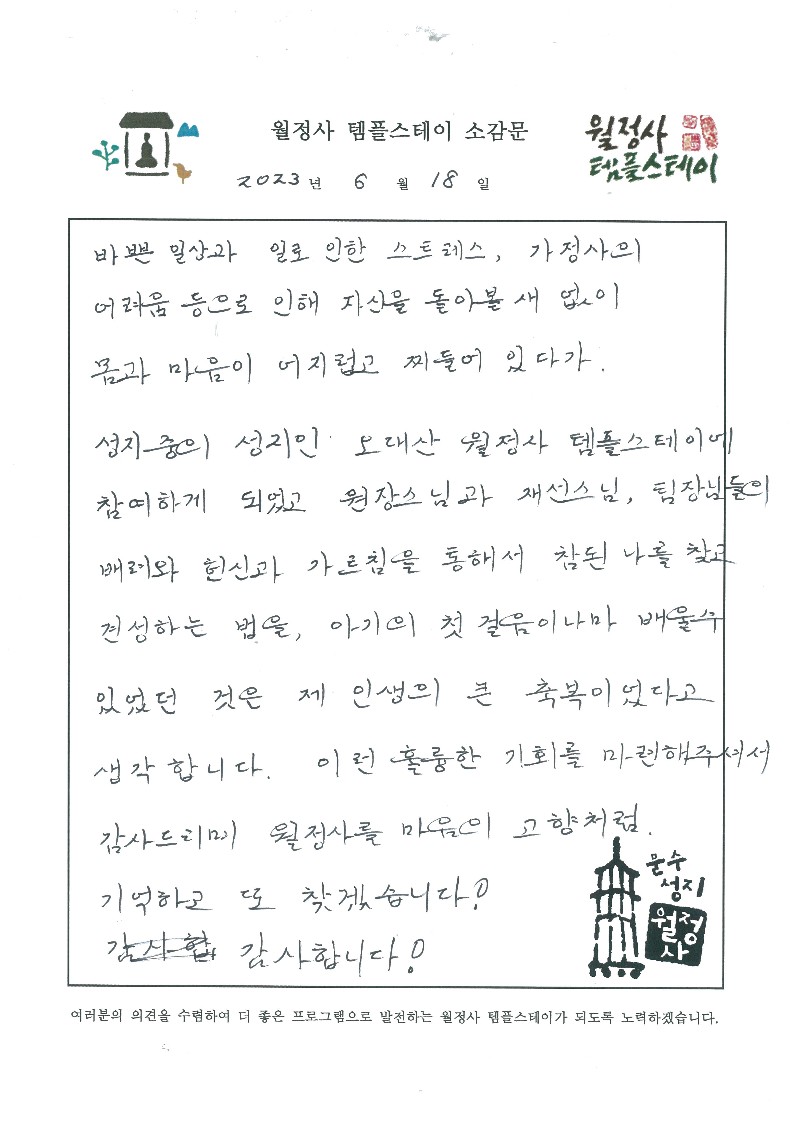 월정사 템플스테이 소감문
월정사
템플스테이
2023년 6월 18일
바쁜 일상과 일로 인한 스트레스, 가정사의
어려움 등으로 인해 자신을 돌아볼 새 없이
몸과 마음이 어지럽고 찌들어 있다가.
성지중의 성지인 오대산 월정사 템플스테이에
참여하게 되었고 원장스님과 재선스님, 팀장님들의
배려와 헌신과 가르침을 통해서 참된 나를 찾고
견성하는 법을, 아기의 첫 걸음이나마 배울수
있었던 것은 제 인생의 큰 축복이었다고
생각합니다. 이런 훌륭한 기회를 마련해주셔서
감사드리며 월정사를 마음의 고향처럼.
기억하고 또 찾겠습니다!
감사합 감사합니다!
문수
성지
월정
사
여러분의 의견을 수렴하여 더 좋은 프로그램으로 발전하는 월정사 템플스테이가 되도록 노력하겠습니다.